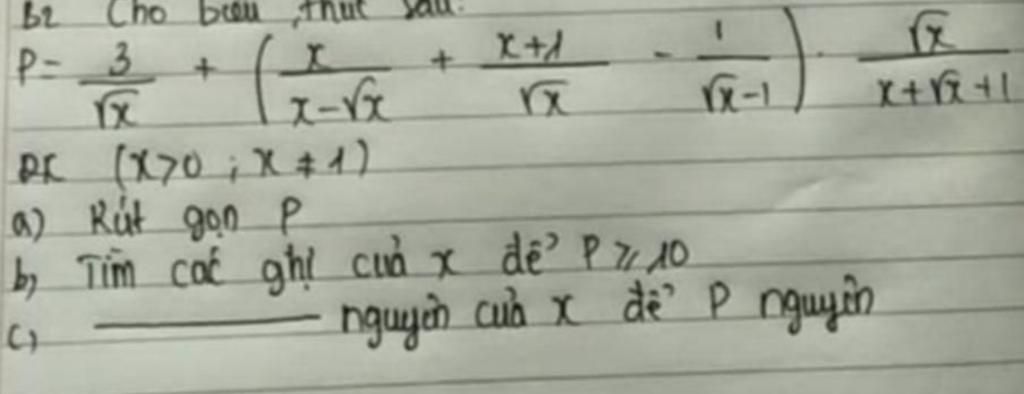 B2 Cho biểu thức sau:
P = 3/√x + (x/(x-√x) + (x+1)/√x - 1/(√x-1)) . √x/(x+√x+1)
ĐK (x>0 ; x ≠ 1)
a) Rút gọn P
b) Tìm các ghị của x để P ⩾ 10
c) ———— nguyên của x để P nguyên